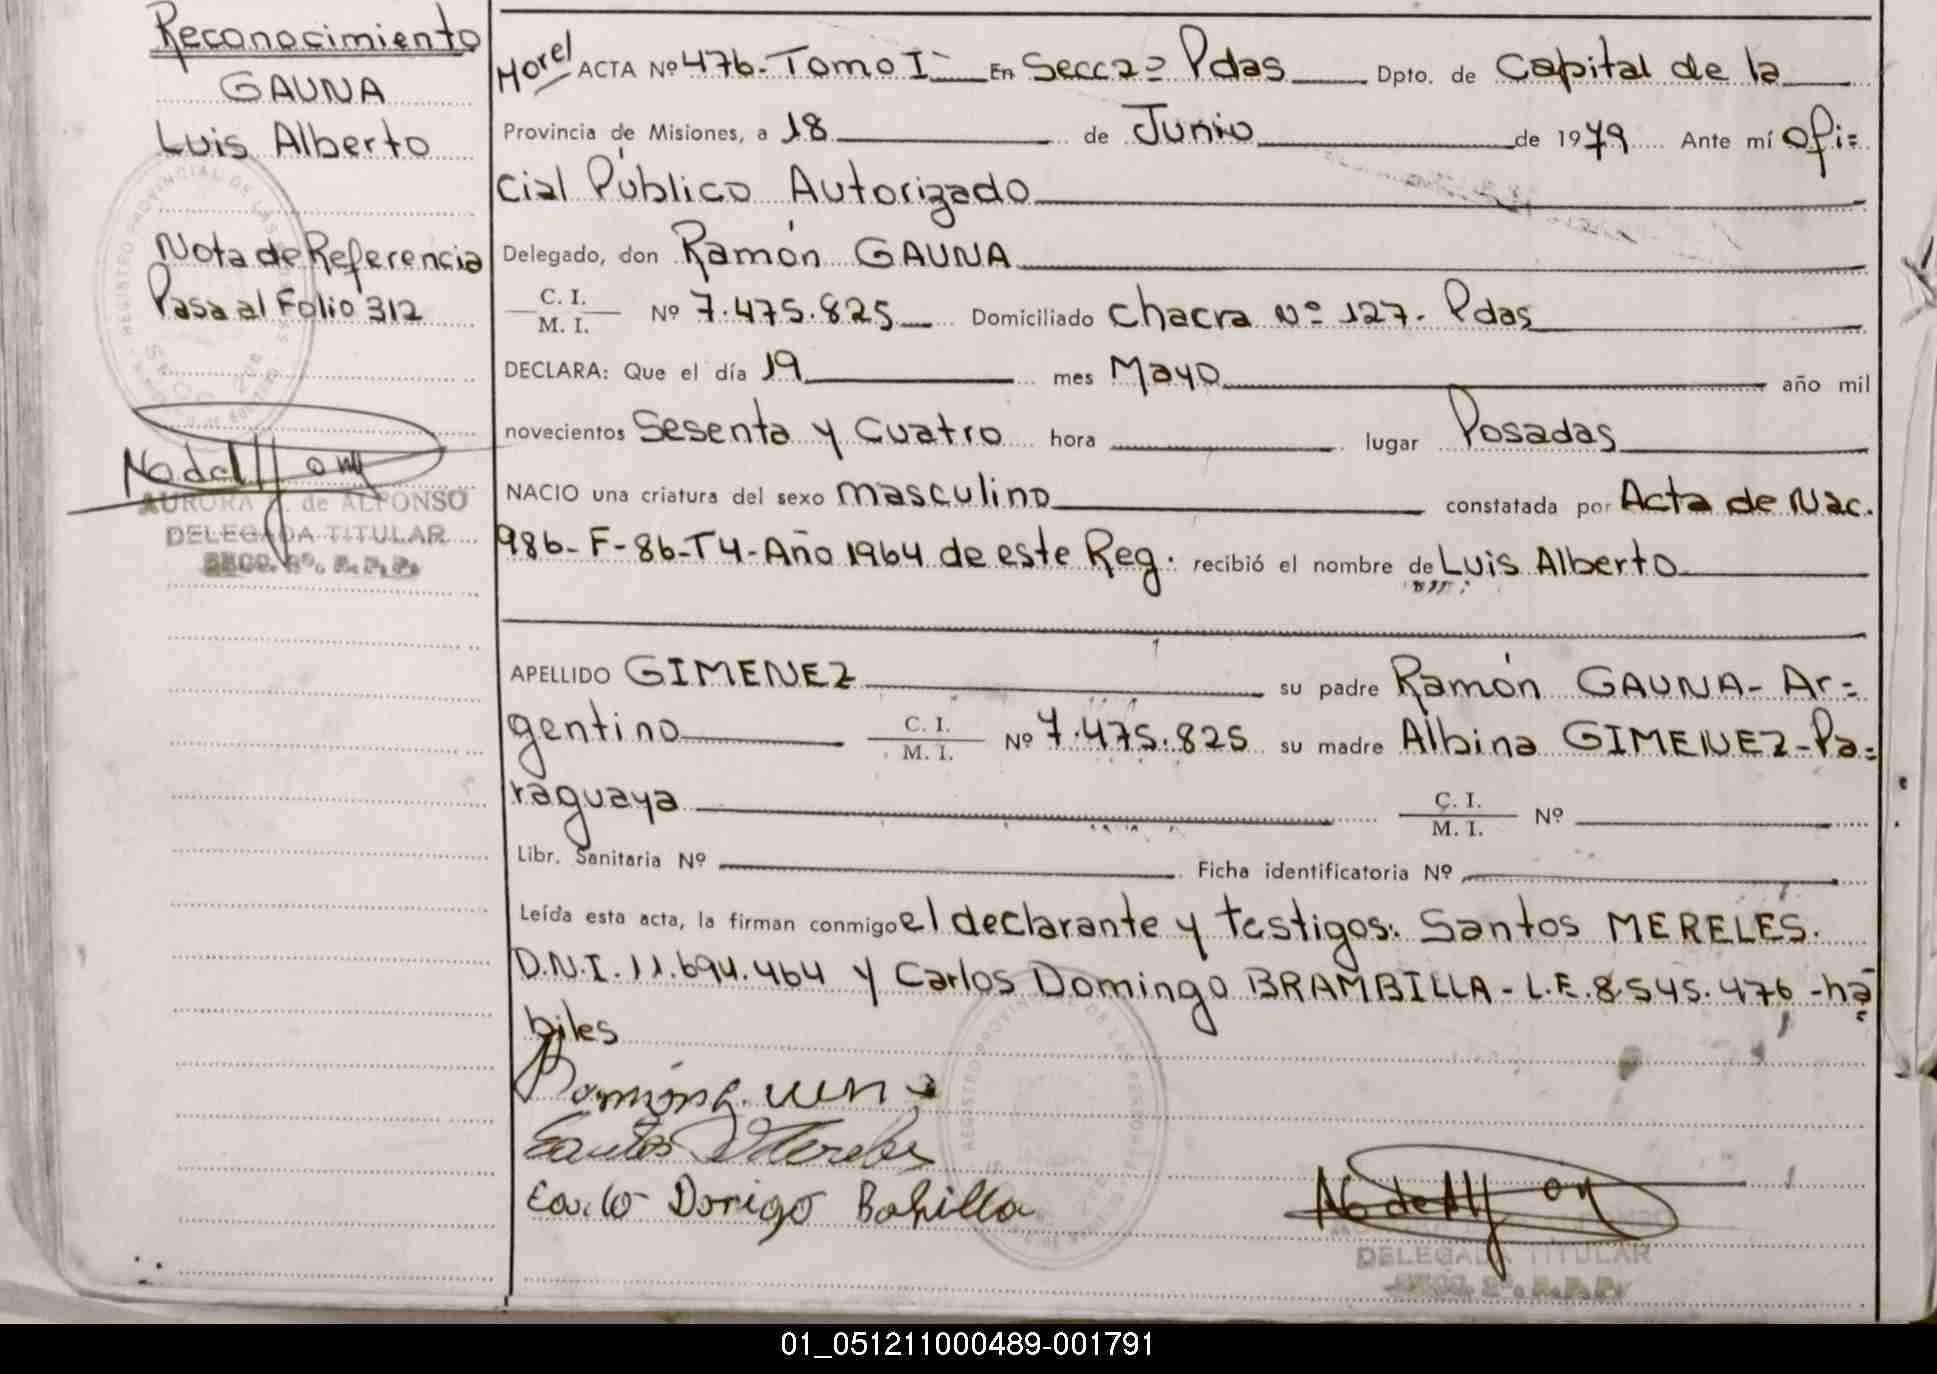 Reconocimiento
GAUNA
Luis Alberto
Nota de Referencia
Pasa al Folio 312
AURORA de ALFONSO
DELEGADA TITULAR
ACTA Nº 476-Tomo I- En Secc 2º Pdas Dpto. de Capital de la
Provincia de Misiones, a 18 de Junio de 1979 Ante mí ofi=
cial Público Autorizado
Delegado, don Ramón GAUNA
C. I.
M. I. Nº 7.475.825 Domiciliado Chacra Nº 127. Pdas
DECLARA: Que el día 19 mes Mayo año mil
novecientos Sesenta y Cuatro hora lugar Posadas
NACIO una criatura del sexo masculino constatada por Acta de Nac.
986-F-86-T4-Año 1964 de este Reg. recibió el nombre de Luis Alberto
APELLIDO GIMENEZ su padre Ramón GAUNA- Ar=
gentino C. I.
M. I. Nº 7.475.825 su madre Albina GIMENEZ-Pa=
raguaya C. I.
M. I. Nº
Libr. Sanitaria Nº Ficha identificatoria Nº
Leída esta acta, la firman conmigo el declarante y testigos: Santos MERELES.
D.N.I. 11.694.464 y Carlos Domingo BRAMBILLA - L.E. 8.545.476 - há=
biles
DELEGADA TITULAR
01_051211000489-001791